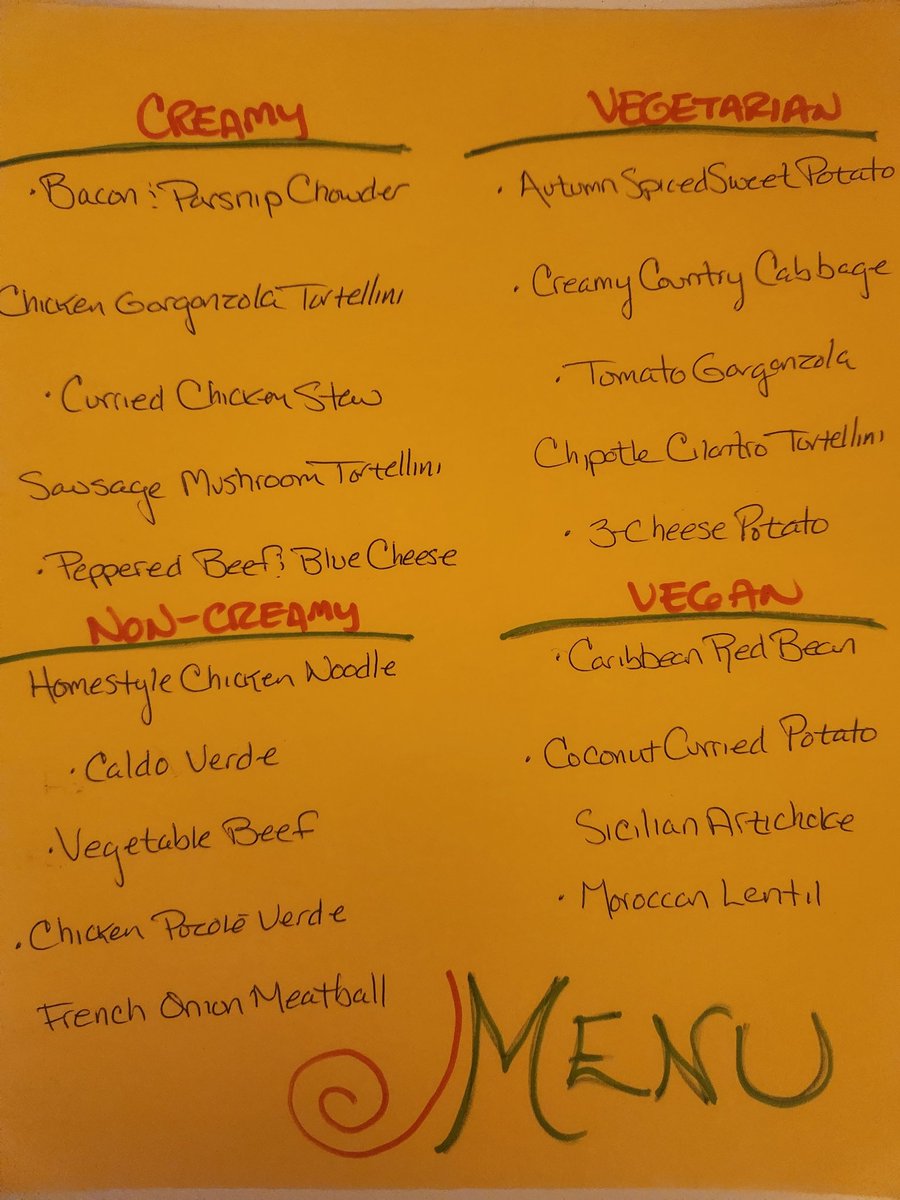 CREAMY
·Bacon & Parsnip Chowder
Chicken Gorgonzola Tortellini
·Curried Chicken Stew
Sausage Mushroom Tortellini
·Peppered Beef & Blue Cheese
NON-CREAMY
Homestyle Chicken Noodle
·Caldo Verde
·Vegetable Beef
·Chicken Pozole Verde
French Onion Meatball
VEGETARIAN
·Autumn Spiced Sweet Potato
·Creamy Country Cabbage
·Tomato Gorgonzola
Chipotle Cilantro Tortellini
·3-Cheese Potato
VEGAN
·Caribbean Red Bean
·Coconut Curried Potato
Sicilian Artichoke
·Moroccan Lentil
MENU